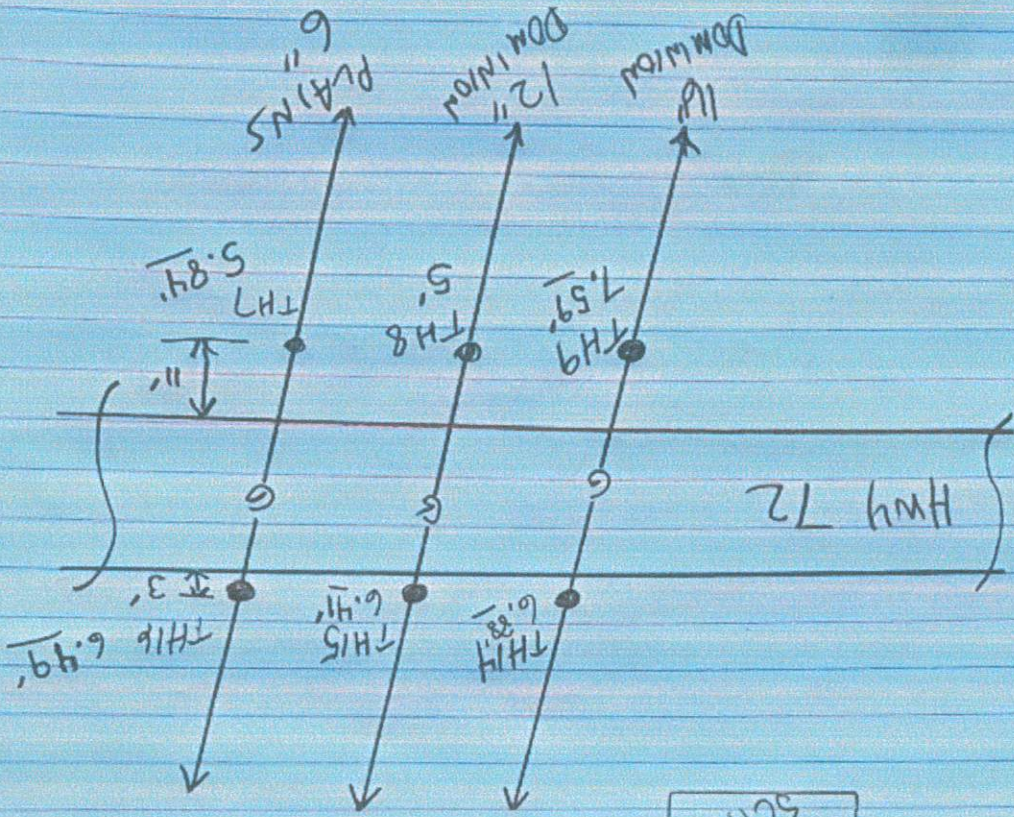 TH14
6.88'
TH15
6.41'
TH16 6.49'
3'
HWY 72
G
G
O
TH9
7.59'
TH8
5'
TH7
5.84'
11'
16"
DOMINION
12"
DOMINION
6"
PLAINS